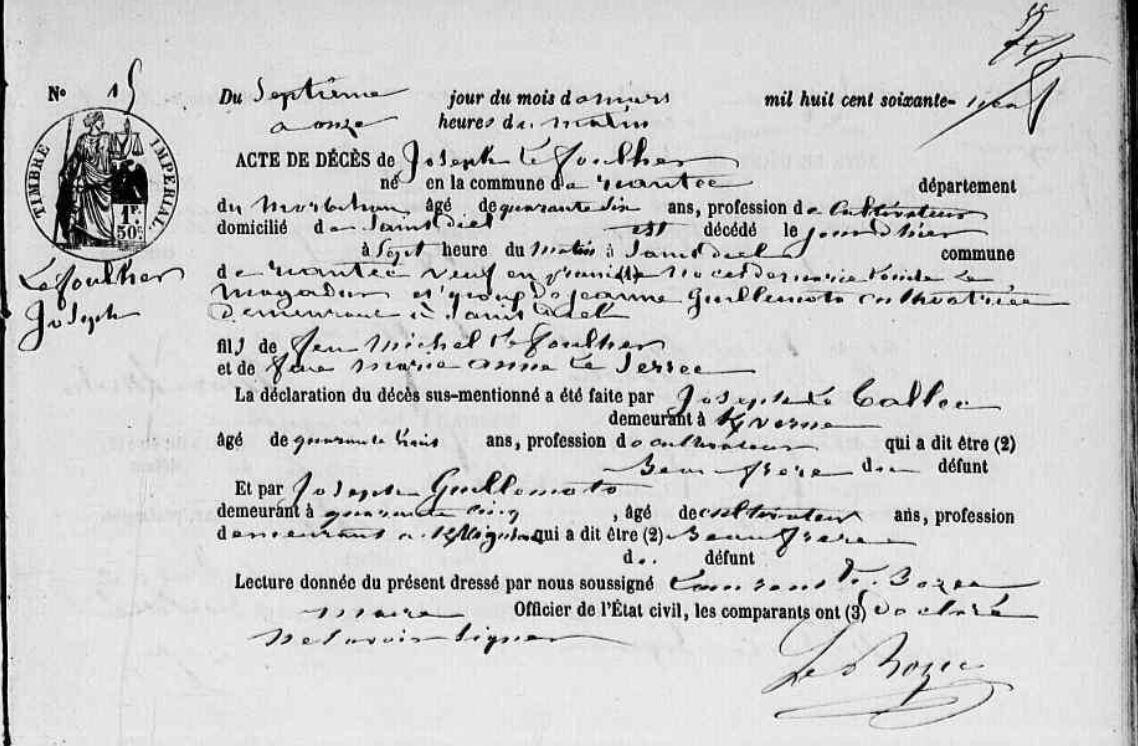 N° 15
Du Septième jour du mois de mars mil huit cent soixante-
a onze heures du matin
ACTE DE DÉCÈS de Joseph Le foulher
né en la commune de département
du Morbihan, âgé de quarante six ans, profession de Cultivateur
domicilié de est décédé le jour d'hier
à Sept heure du matin à commune
de veuf en de marie Louise Le
magadur et époux de jeanne Guillemoto cultivatrice
demeurant à
fils de feu Michel Le foulher
et de feue marie anne Le
La déclaration du décès sus-mentionné a été faite par Joseph Le Callec
demeurant à
âgé de quarante trois ans, profession de cultivateur qui a dit être (2)
Beau frere du défunt
Et par Joseph Guillemoto
demeurant à quarante cinq , âgé de cultivateur ans, profession
demeurant a qui a dit être (2) Beau frere
d.. défunt
Lecture donnée du présent dressé par nous soussigné
maire Officier de l'État civil, les comparants ont (3) déclaré
ne savoir signer
TIMBRE IMPÉRIAL
1 F. 50 c.
Le foulher
Joseph